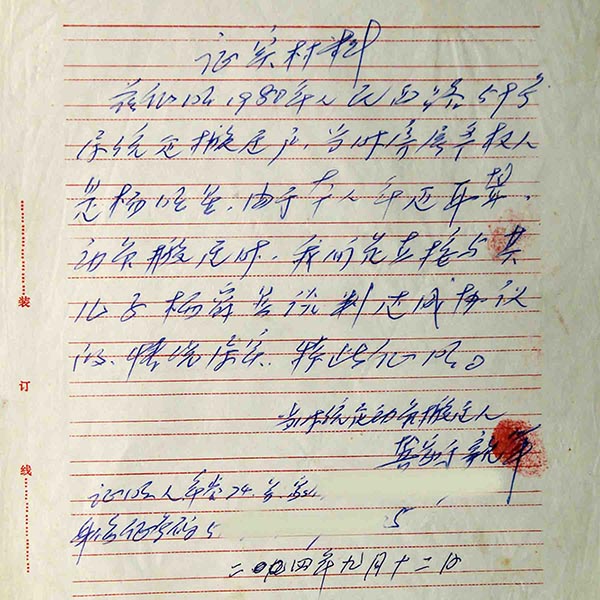 证实材料
兹证明1980年人民西路59号
房统建搬迁户,当时房屋产权人
是杨 ,由于本人年迈耳聋,
动员搬迁时,我们是直接与其
儿子杨蔚 谈判达成协议
的,情况属实,特此证明。
当时统建动员搬迁人
证明人 74
身份证号码5 5
二〇〇四年九月十二日
装
订
线